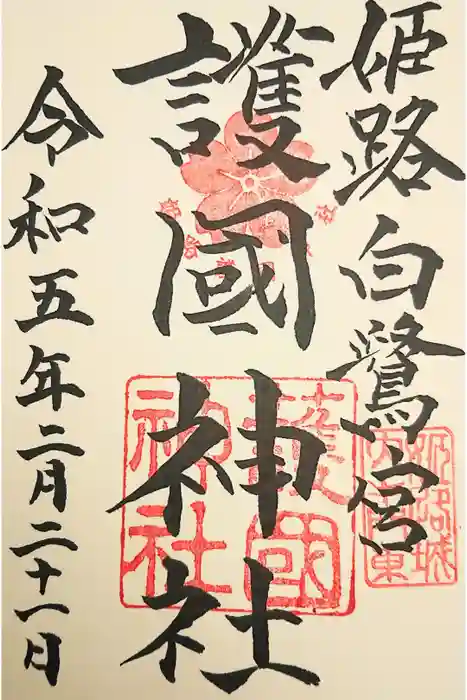 姫路白鷺宮
護國神社
令和五年二月二十一日
護國神社
姫路城